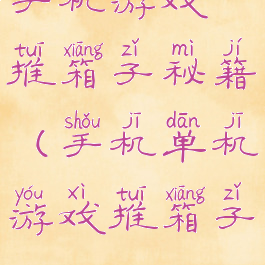 手机游戏
tuī xiāng zǐ mì jí
推箱子秘籍
shǒu jī dān jī
(手机单机
yóu xì tuī xiāng zǐ
游戏推箱子